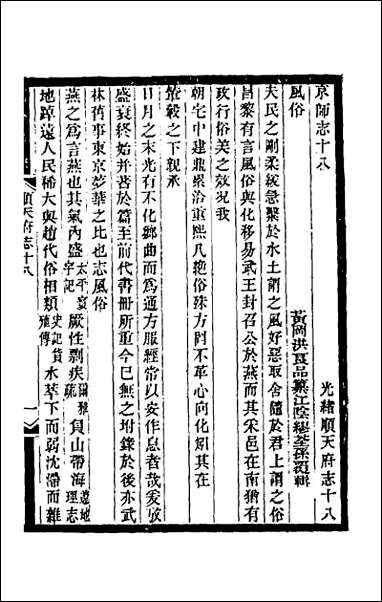 光緒順天府志十八
京師志十八
黃岡洪良品纂江陰繆荃孫覆輯
風俗
夫民之剛柔緩急繫於水土謂之風好惡取舍隨於君上謂之俗
昌黎有言風俗與化移易武王封召公於燕而其宋邑在南猶有
政行俗美之效況我
朝宅中建鼎累洽重熙凡絶俗殊方罔不革心向化矧其在
輦轂之下親承
日月之末光有不化鄉曲而爲通方服經常以安作息者哉爰攷
盛衰終始并著於篇至前代書冊所重今已無之坿錄於後亦武
林舊事東京夢華之比也志風俗
燕之爲言燕也其氣內盛太平寰宇記厥性剽疾爾雅疏負山帶海遼地理志
地踔遠人民稀大與趙代俗相類史記貨殖傳水萃下而弱沈滯而雜
順天府志十八
一